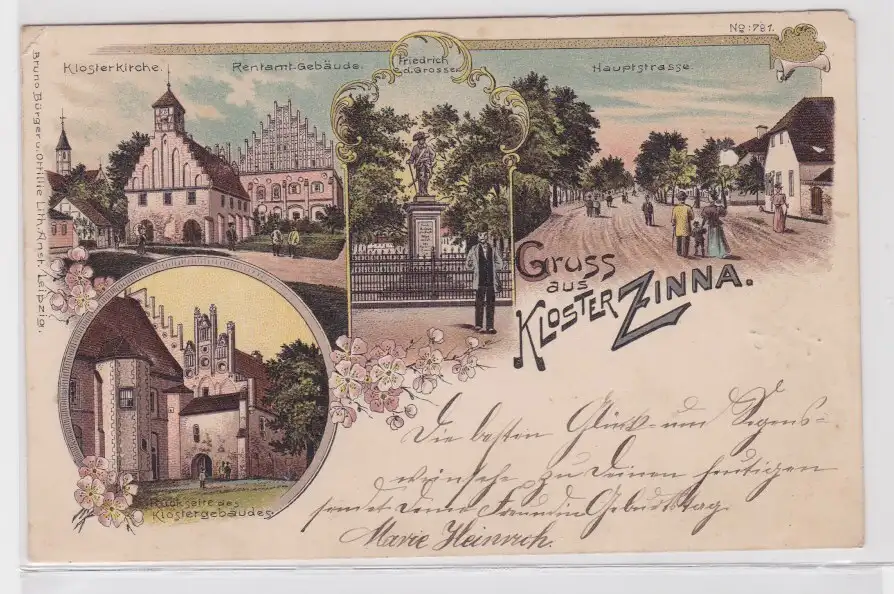 No: 781.
Klosterkirche.
Rentamt-Gebäude.
Friedrich
d. Grossen
Hauptstrasse.
Bruno Bürger u. Ottilie Lith. Anst. Leipzig.
Gruss
aus
KLOSTER ZINNA.
Rückseite des
Klostergebäudes.
Die besten Glück- und Segens-
wünsche zu Deinem heutigen
sendet Deine Freundin Geburtstag
Marie Heinrich.